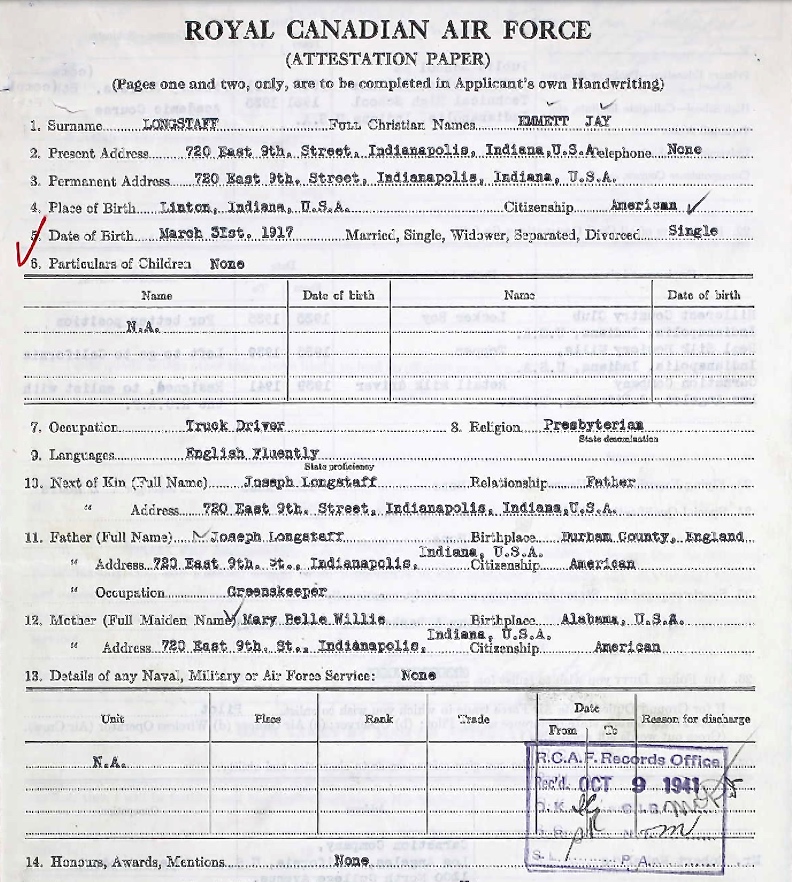 ROYAL CANADIAN AIR FORCE
(ATTESTATION PAPER)
(Pages one and two, only, are to be completed in Applicant's own Handwriting)
1. Surname LONGSTAFF Full Christian Names EMMETT JAY
2. Present Address 720 East 9th. Street, Indianapolis, Indiana, U.S.A. Telephone None
3. Permanent Address 720 East 9th. Street, Indianapolis, Indiana, U.S.A.
4. Place of Birth Linton, Indiana, U.S.A. Citizenship American
5. Date of Birth March 31st. 1917 Married, Single, Widower, Separated, Divorced Single
6. Particulars of Children None
Name Date of birth Name Date of birth
N.A.
7. Occupation Truck Driver 8. Religion Presbyterian
State denomination
9. Languages English Fluently
State proficiency
10. Next of Kin (Full Name) Joseph Longstaff Relationship Father
" Address 720 East 9th. Street, Indianapolis, Indiana, U.S.A.
11. Father (Full Name) Joseph Longstaff Birthplace Durham County, England
Indiana, U.S.A.
" Address 720 East 9th. St., Indianapolis, Citizenship American
" Occupation Greenskeeper
12. Mother (Full Maiden Name) Mary Belle Willie Birthplace Alabama, U.S.A.
Indiana, U.S.A.
" Address 720 East 9th. St., Indianapolis, Citizenship American
13. Details of any Naval, Military or Air Force Service: None
Unit Place Rank Trade Date Reason for discharge
From To
N.A.
R.C.A.F. Records Office
Rec'd. OCT 9 1941
O.K.
S.L. P.A.
14. Honours, Awards, Mentions None